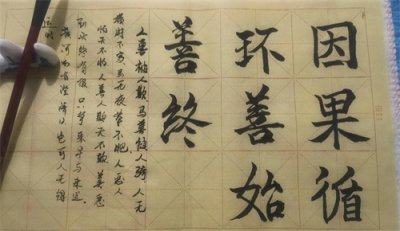 因果循
环善始
善终
人善被人欺马善被人骑,人无
横财不富,马无夜草不肥,人恶人
怕天不怕人善人欺天不欺 善恶
到头终有报 只争来早与来迟
黄河尚有澄清日 岂可人无得
运时